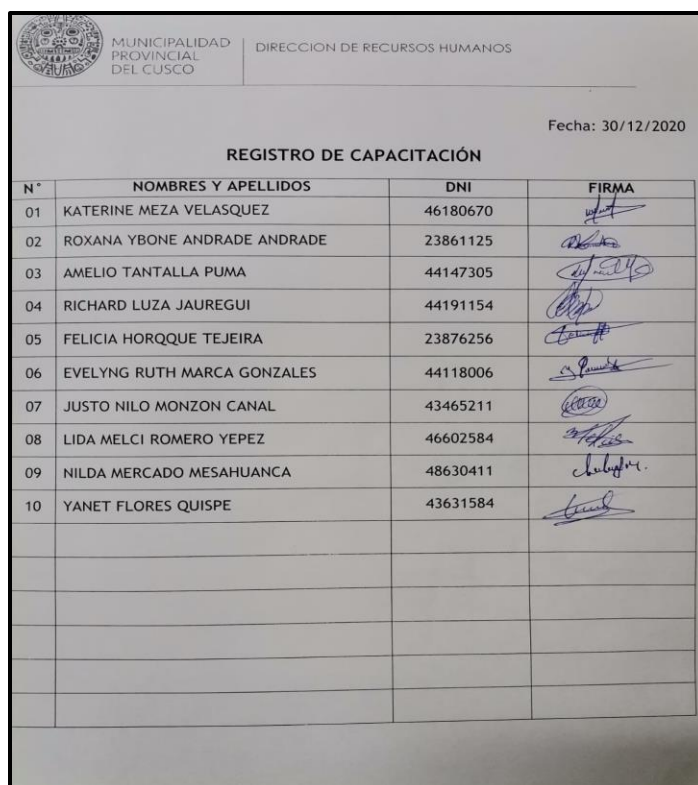 MUNICIPALIDAD
PROVINCIAL
DEL CUSCO
DIRECCION DE RECURSOS HUMANOS
Fecha: 30/12/2020
REGISTRO DE CAPACITACIÓN
N° NOMBRES Y APELLIDOS DNI FIRMA
01 KATERINE MEZA VELASQUEZ 46180670
02 ROXANA YBONE ANDRADE ANDRADE 23861125
03 AMELIO TANTALLA PUMA 44147305
04 RICHARD LUZA JAUREGUI 44191154
05 FELICIA HORQQUE TEJEIRA 23876256
06 EVELYNG RUTH MARCA GONZALES 44118006
07 JUSTO NILO MONZON CANAL 43465211
08 LIDA MELCI ROMERO YEPEZ 46602584
09 NILDA MERCADO MESAHUANCA 48630411
10 YANET FLORES QUISPE 43631584